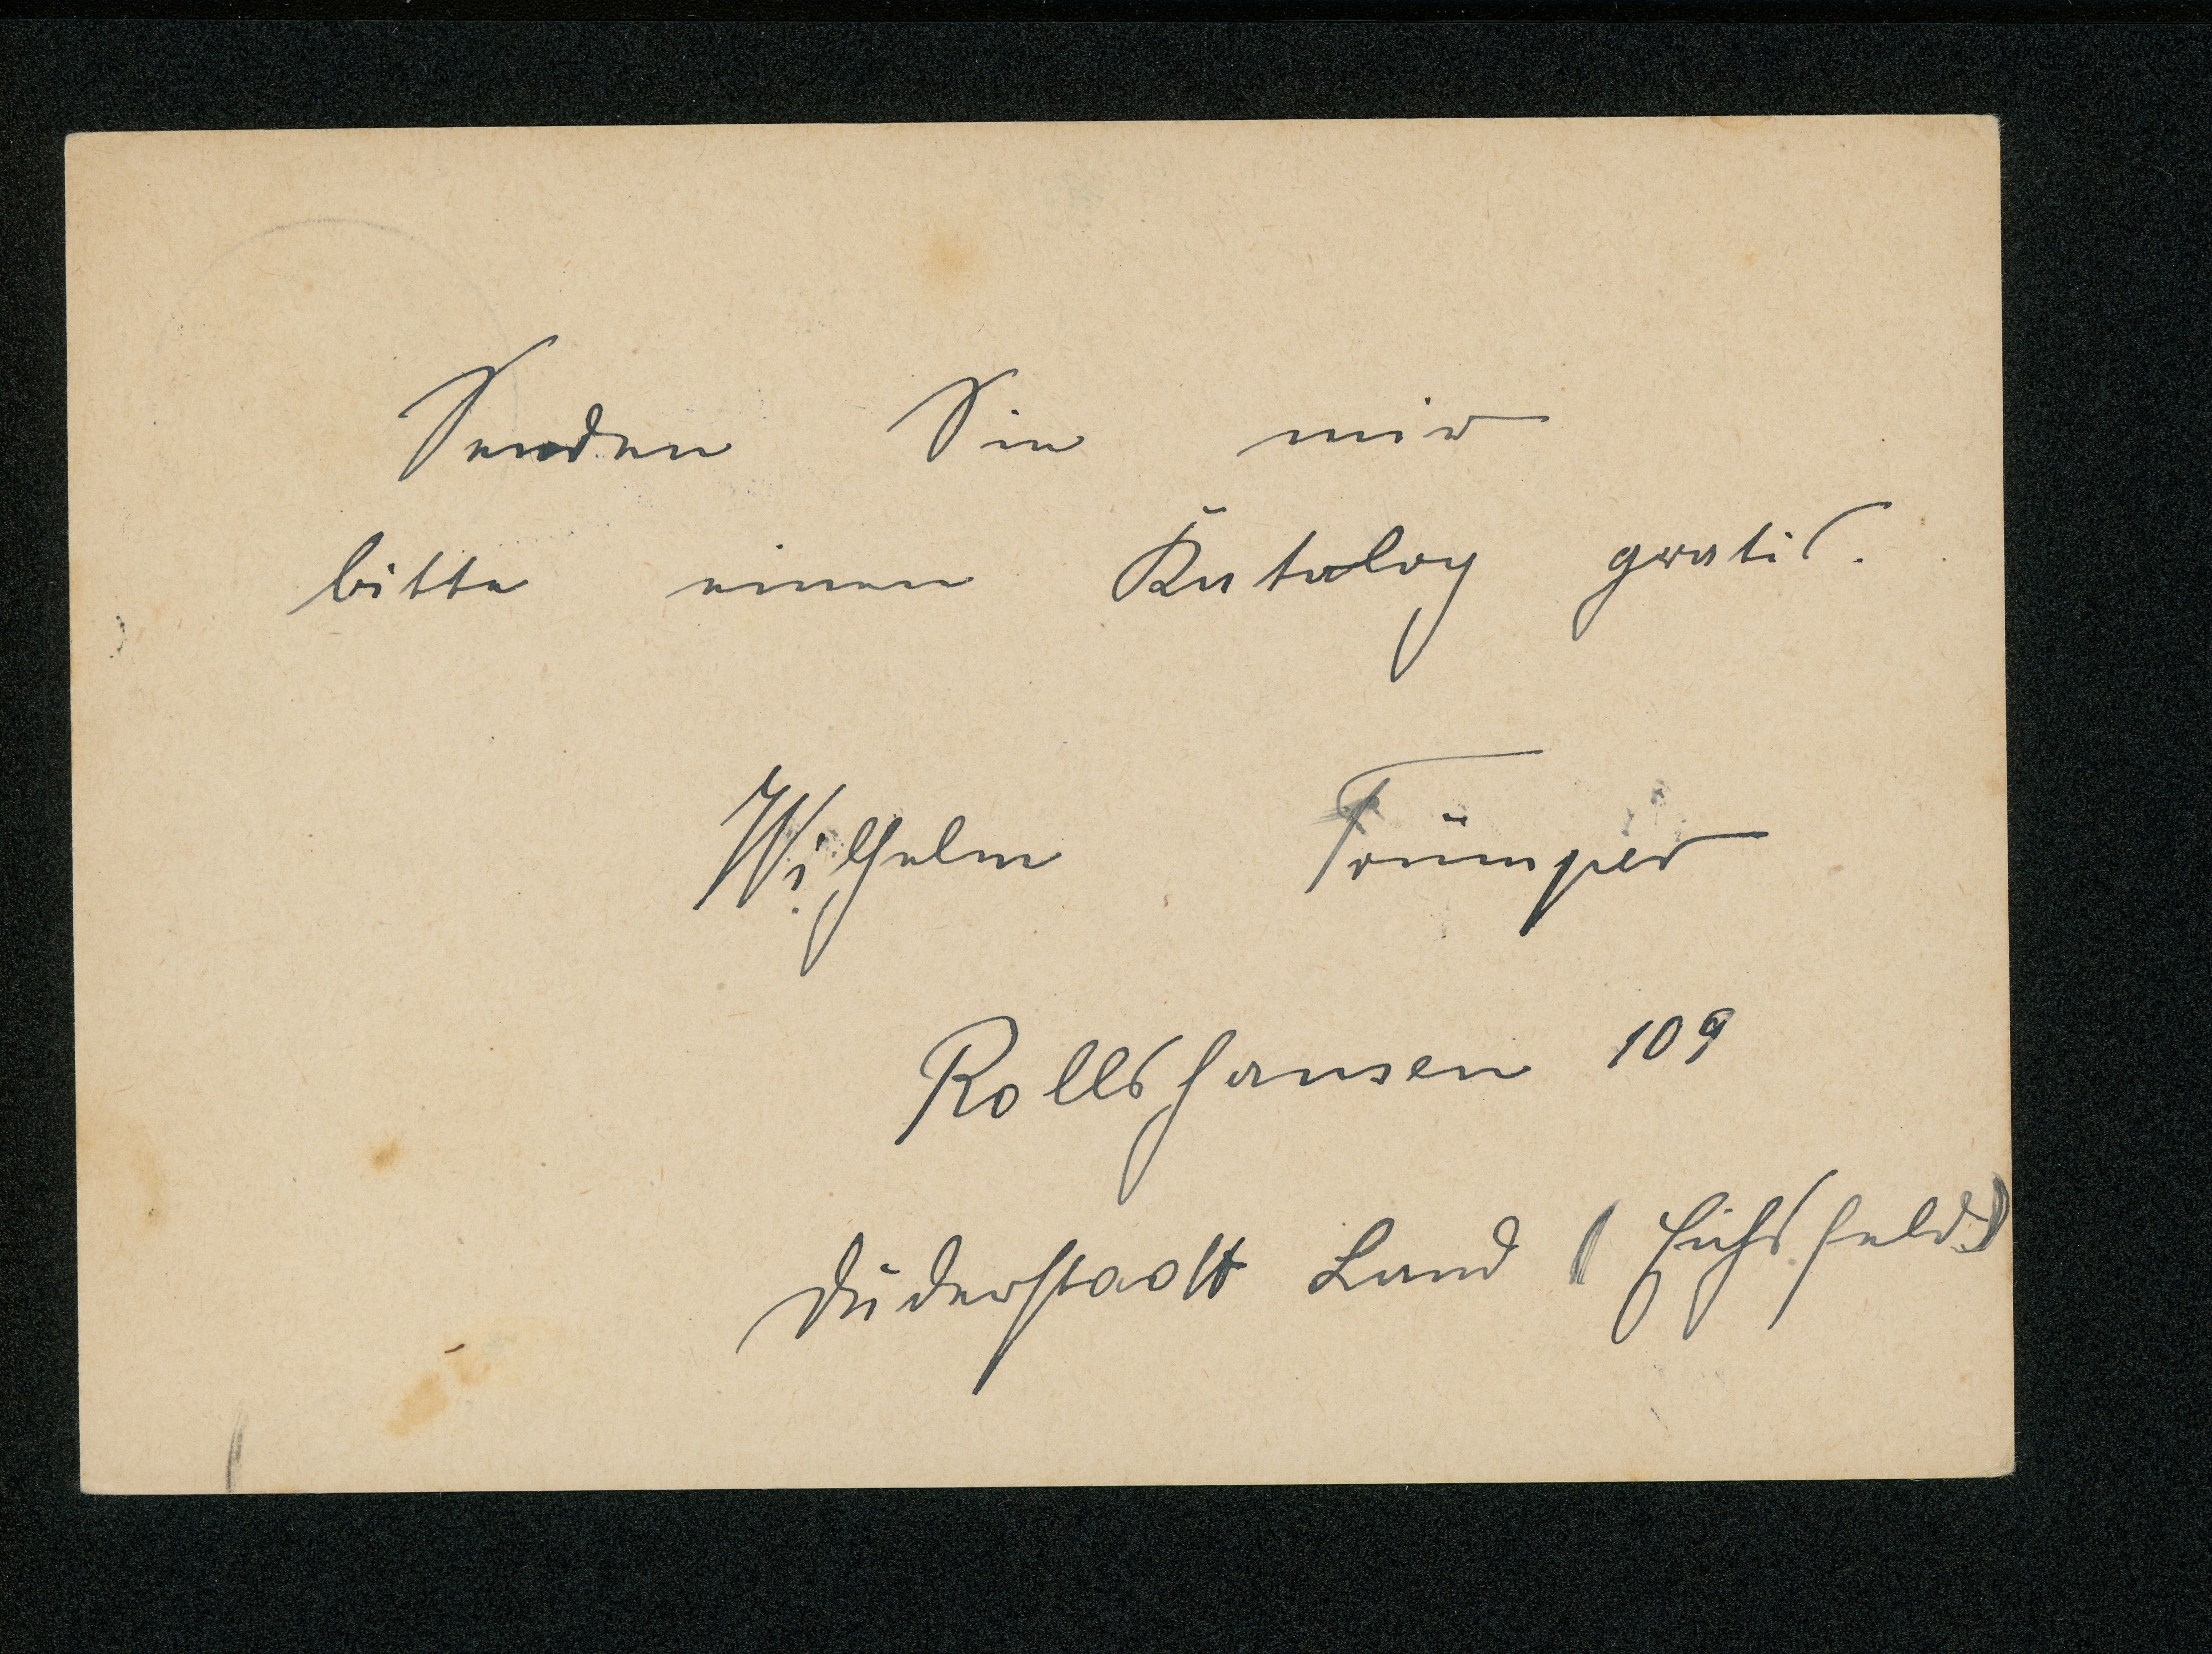 Senden Sie mir
bitte einen Katalog gratis.
Wilhelm Trümper
Rollshausen 109
Duderstadt Land (Eichsfeld)